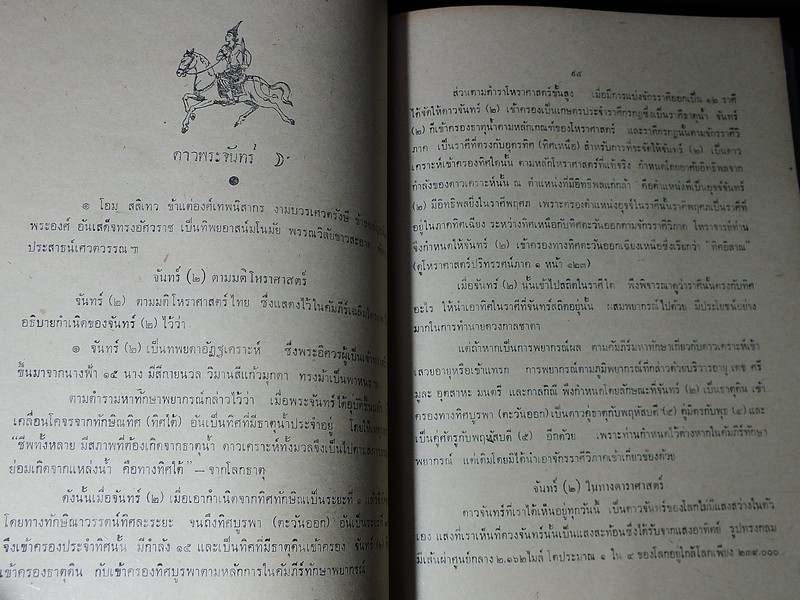 ดาวพระจันทร์
๏ โอม สสิเทว ข้าแต่องค์เทพนิสากร งามบวรเศวตรังษี
พระองค์ อันเสด็จทรงอัศวราช เป็นทิพยอาสน์มโนมัย พรรณวิลัยขาวสะอาด
ประสาธน์เศวตวรรณฯ
จันทร์ (๒) ตามมติโหราศาสตร์
จันทร์ (๒) ตามมติโหราศาสตร์ไทย ซึ่งแสดงไว้ในคัมภีร์เฉลิม
อธิบายกำเนิดของจันทร์ (๒) ไว้ว่า
๏ จันทร์ (๒) เป็นทพยดาอัฏฐเคราะห์ ซึ่งพระอิศวรผู้เป็นเจ้า
ขึ้นมาจากนางฟ้า ๑๕ นาง มีสีกายนวล วิมานสีแก้วมุกดา ทรงม้าเป็นพาหนะ
ตามตำรามหาทักษาพยากรณ์กล่าวไว้ว่า เมื่อพระจันทร์ได้อุบัติขึ้นแล้ว
เคลื่อนโคจรจากทักษิณทิศ (ทิศใต้) อันเป็นทิศที่มีธาตุน้ำประจำอยู่
“ชีพทั้งหลาย มีสภาพที่ต้องเกิดจากธาตุน้ำ ดาวเคราะห์ทั้งมวลจึงเป็นไปตาม
ย่อมเกิดจากแหล่งน้ำ คือทางทิศใต้”—จากโลกธาตุ
ดังนั้นเมื่อจันทร์ (๒) เมื่อเอากำเนิดจากทิศทักษิณเป็นระยะที่ ๑
โดยทางทักษิณาวรรตน์ทิศละระยะ จนถึงทิศบูรพา (ตะวันออก)
จึงเข้าครองประจำทิศนั้น มีกำลัง ๑๕ และเป็นทิศที่มีธาตุดินเข้าครอง จันทร์
เข้าครองธาตุดิน กับเข้าครองทิศบูรพาตามหลักการในคัมภีร์ทักษาพยากรณ์
๙๕
ส่วนตามตำราโหราศาสตร์ชั้นสูง เมื่อมีการแบ่งจักรราศีออกเป็น ๑๒ ราศี
ได้จัดให้ดาวจันทร์ (๒) เข้าครองเป็นเกษตรประจำราศีกรกฎซึ่งเป็นราศีธาตุน้ำ จันทร์
(๒) ก็เข้าครองธาตุน้ำตามหลักเกณฑ์ของโหราศาสตร์ และราศีกรกฎนั้นตามจักรราศีวิ
ภาค เป็นราศีที่ตรงกับอุดรทิศ (ทิศเหนือ) สำหรับการที่จะจัดให้จันทร์ (๒) เป็นดาว
เคราะห์เข้าครองทิศใดนั้น ตามหลักโหราศาสตร์ที่แท้จริง กำหนดโดยอาศัยอิทธิพลจาก
กำลังของดาวเคราะห์นั้น ณ ตำแหน่งที่มีอิทธิพลแก่กล้า คือตำแหน่งที่เป็นอุจจ์จันทร์
(๒) มีอิทธิพลยิ่งในราศีพฤศภ เพราะครองตำแหน่งอุจจ์ในราศีนั้นราศีพฤศภเป็นราศีที่
อยู่ในภาคทิศเฉียง ระหว่างทิศเหนือกับทิศตะวันออกตามจักรราศีวิภาค โหราจารย์ท่าน
จึงกำหนดให้จันทร์ (๒) เข้าครองทางทิศตะวันออกเฉียงเหนือซึ่งเรียกว่า “ทิศอิสาณ”
(ดูโหราศาสตร์ปริทรรศน์ภาค ๑ หน้า ๑๒๓)
เมื่อจันทร์ (๒) นั้นเข้าไปสถิตในราศีใด พึงพิจารณาดูว่าราศีนั้นตรงกับทิศ
อะไร ให้นำเอาทิศในราศีที่จันทร์สถิตอยู่นั้น ผสมพยากรณ์ไปด้วย มีประโยชน์อย่าง
มากในการทำนายดวงกาลชาตา
แต่ถ้าหากเป็นการพยากรณ์ผล ตามคัมภีร์มหาทักษาเกี่ยวกับดาวเคราะห์เข้า
เสวยอายุหรือเข้าแทรก การพยากรณ์ตามภูมิพยากรณ์ที่กล่าวด้วยบริวารอายุ เดช ศรี
มูละ อุตสาหะ มนตรี และกาลกิณี พึงกำหนดโดยลักษณะที่จันทร์ (๒) เป็นธาตุดิน เข้า
ครองทางทิศบูรพา (ตะวันออก)เป็นดาวคู่ธาตุกับพฤหัสบดี (๕) คู่มิตรกับพุธ (๔) และ
เป็นคู่ศัตรูกับพฤหัสบดี (๕) อีกด้วย เพราะท่านกำหนดไว้ต่างหากในคัมภีร์ทักษา
พยากรณ์ แต่เดิมโดยมิได้นำเอาจักรราศีวิภาคเข้าเกี่ยวข้องด้วย
จันทร์ (๒) ในทางดาราศาสตร์
ดาวจันทร์ที่เราได้เห็นอยู่ทุกวันนี้ เป็นดาวจันทร์ของโลกไม่มีแสงสว่างในตัว
เอง แสงที่เราเห็นที่ดวงจันทร์นั้นเป็นแสงสะท้อนซึ่งได้รับจากแสงอาทิตย์ รูปทรงกลม
มีเส้นผ่าศูนย์กลาง ๒.๑๖๒ไมล์ โตประมาณ ๑ ใน ๔ ของโลกอยู่ใกล้โลกเพียง ๒๓๙.๐๐๐